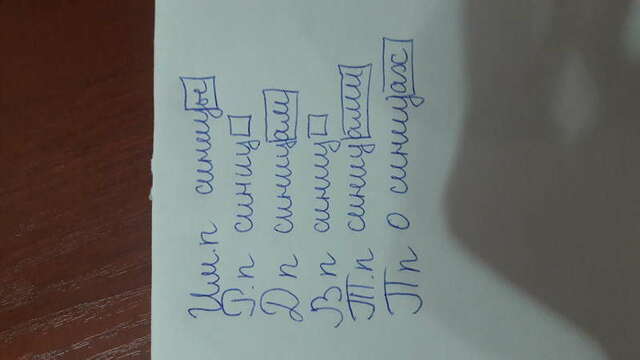 Им.п синицы
Р.п синиц
Д п синицам
В п синиц
Т.п синицами
П п О синицах